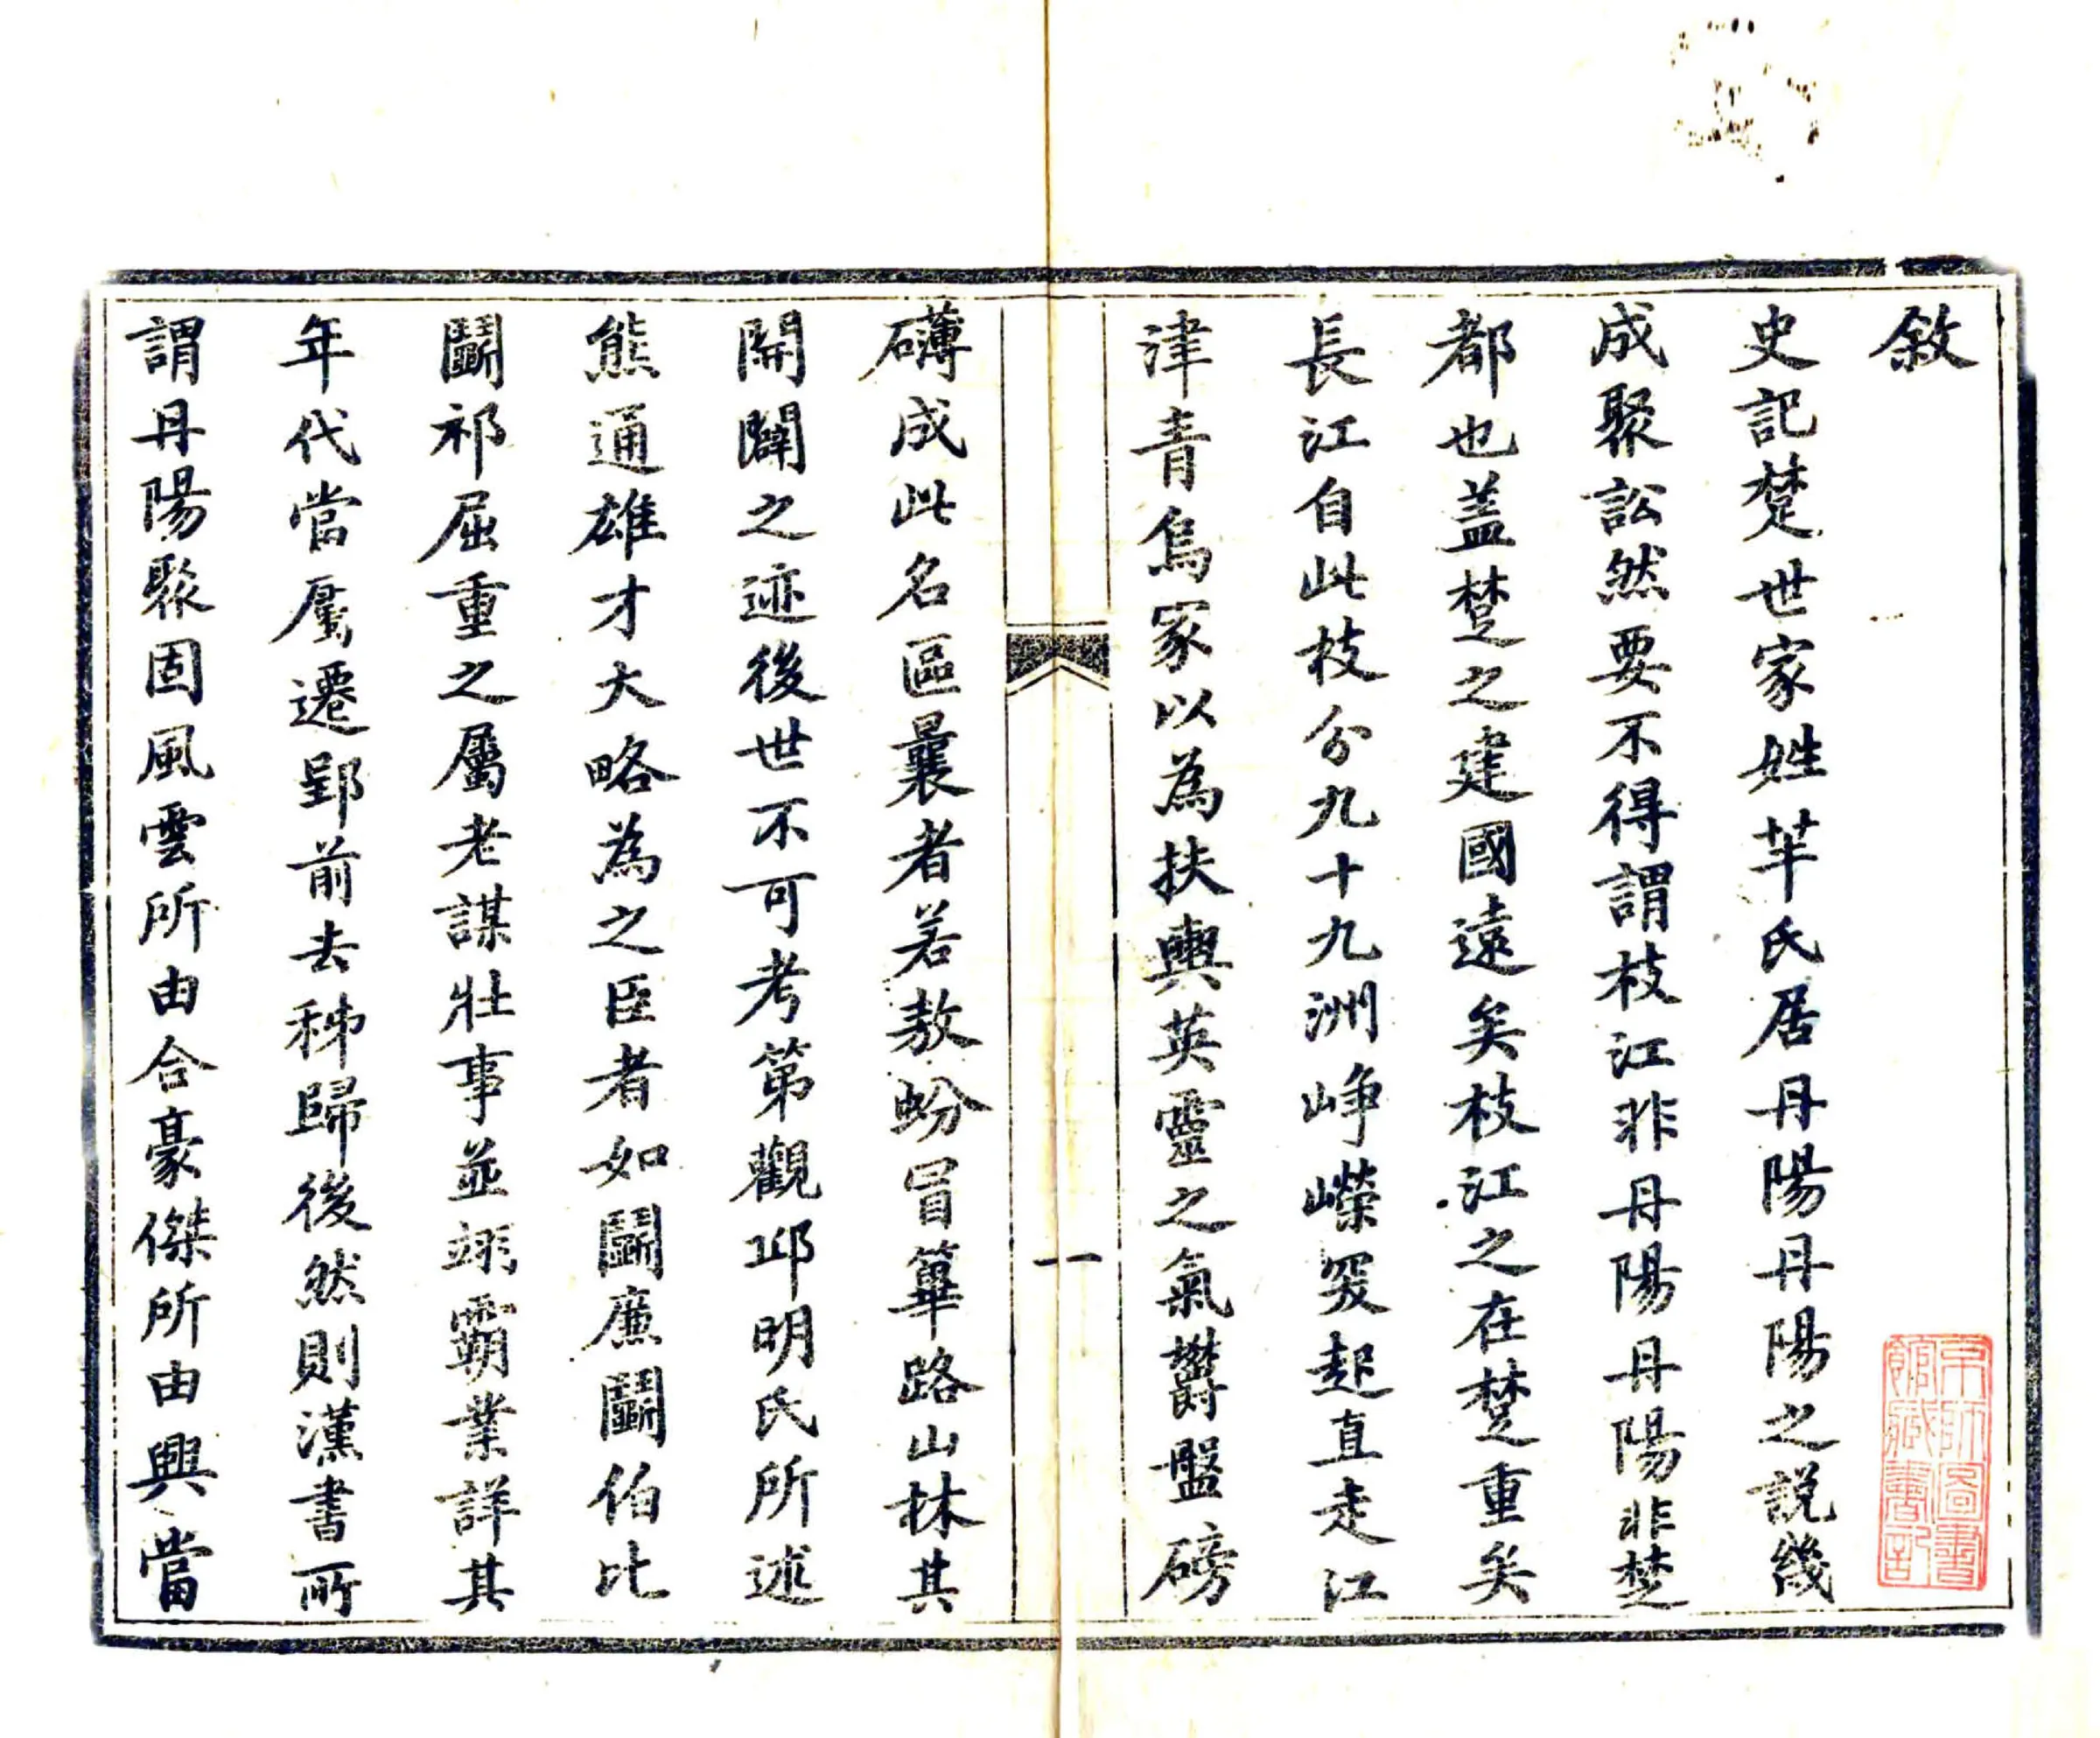 敘
史記楚世家姓芈氏居丹陽丹陽之説幾
成聚訟然要不得謂枝江非丹陽丹陽非楚
都也蓋楚之建國遠矣枝江之在楚重矣
長江自此枝分九十九洲崢嶸突起直走江
津青烏家以為扶輿英靈之氣欝盤磅
礴成此名區曩者若敖蚡冒篳路山林其
開闢之迹後世不可考第觀邱明氏所述
熊通雄才大略為之臣者如鬭廉鬭伯比
鬭祁屈重之屬老謀壯事並翊霸業詳其
年代當屬遷郢前去秭歸後然則漢書所
謂丹陽聚固風雲所由合豪傑所由興當
一
京師圖書
館藏書記